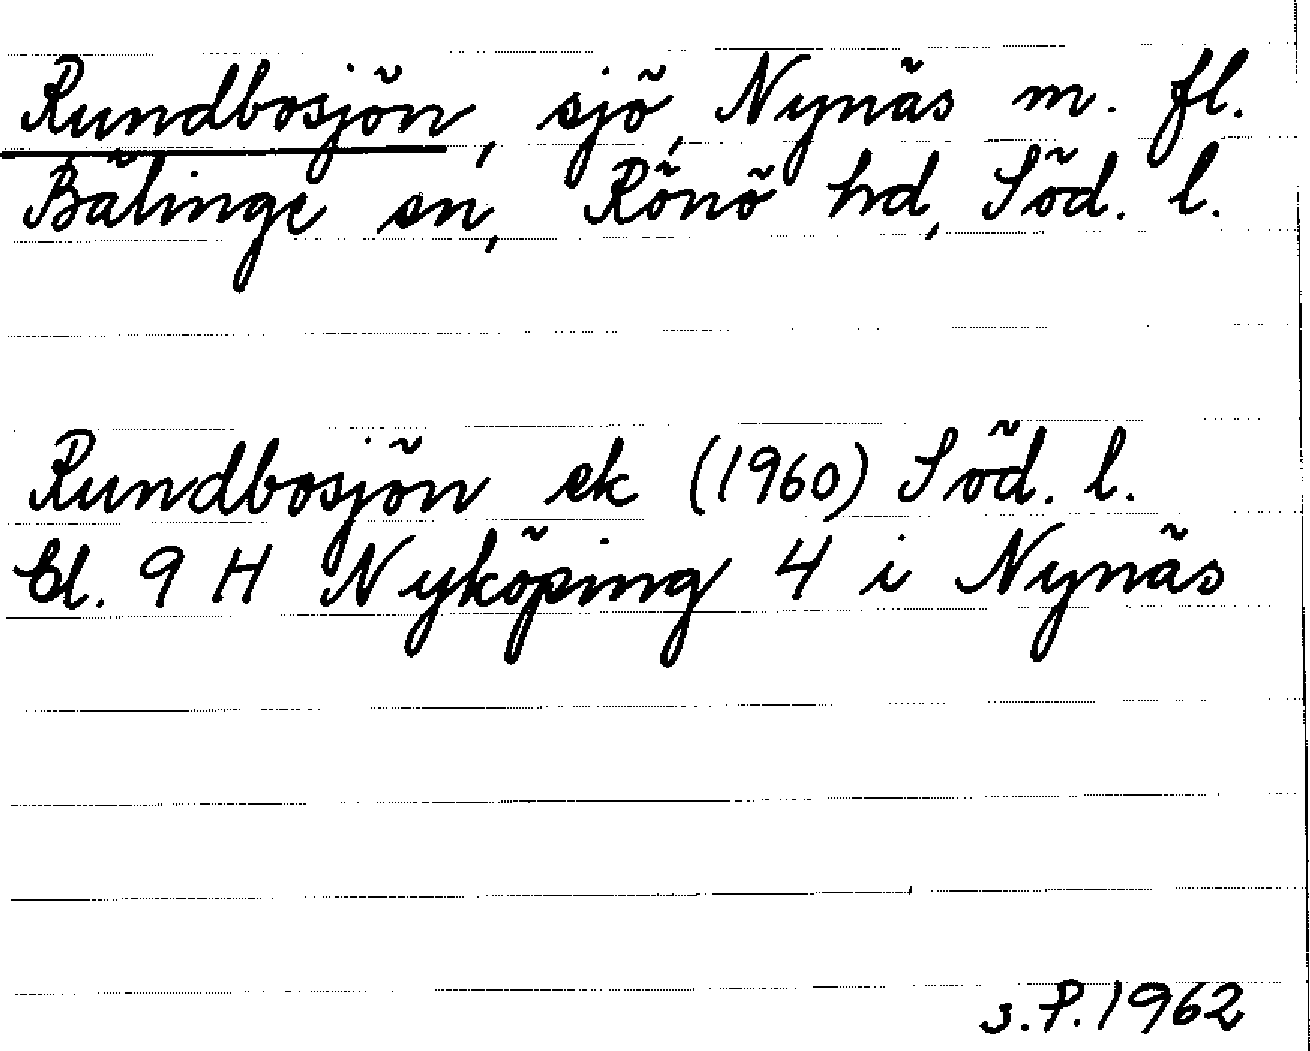 Rundbosjön, sjö, Nynäs m. fl.
Bälinge sn, Rönö hd, Söd. l.
Rundbosjön ek (1960) Söd. l.
bl. 9 H Nyköping 4 i Nynäs
s.P. 1962